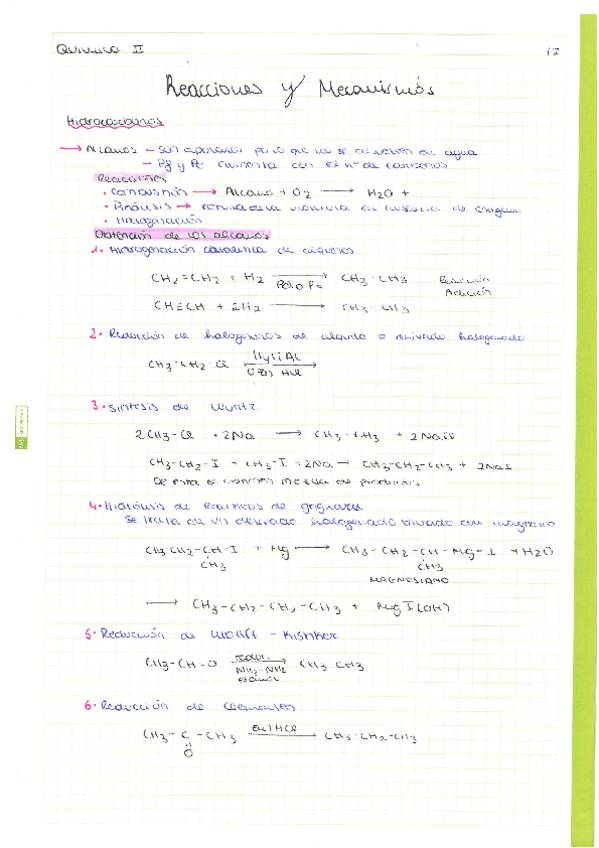 Química II 17
Reacciones y Mecanismos
Hidrocarburos
→ Alcanos - Son apolares por lo que no se disuelven en agua
- Pf y Pe aumenta con el nº de carbonos
Reacciones
· Combustión → Alcano + O2 → H2O +
· Pirólisis → de oxígeno
· Halogenación
Obtención de los alcanos
1. Hidrogenación catalítica de alquenos
CH2=CH2 + H2 → Pd o Pt CH3-CH3 Reacción
Adición
CH≡CH + 2H2 → CH3-CH3
2. Reducción de halogenuros de alquilo o derivado halogenado
CH3-CH2-Cl H4LiAl
o Zn HCl
3. Síntesis de Wurtz
2CH3-Cl + 2Na → CH3-CH3 + 2NaCl
CH3-CH2-I + CH3-I + 2Na → CH3-CH2-CH3 + 2NaI
mezcla de productos
4. Hidrólisis de reactivos de grignard
Se trata de un derivado halogenado tratado con magnesio
CH3CH2-CH-I + Mg → CH3-CH2-CH-Mg-I + H2O
CH3 CH3
MAGNESIANO
→ CH3-CH2-CH2-CH3 + MgI(OH)
5. Reducción de Wolff - Kishner
NH2-NH2 CH3 CH3
etanol
6. Reducción de Clemensen
CH3-C-CH3 Zn/HCl → CH3-CH2-CH3
O